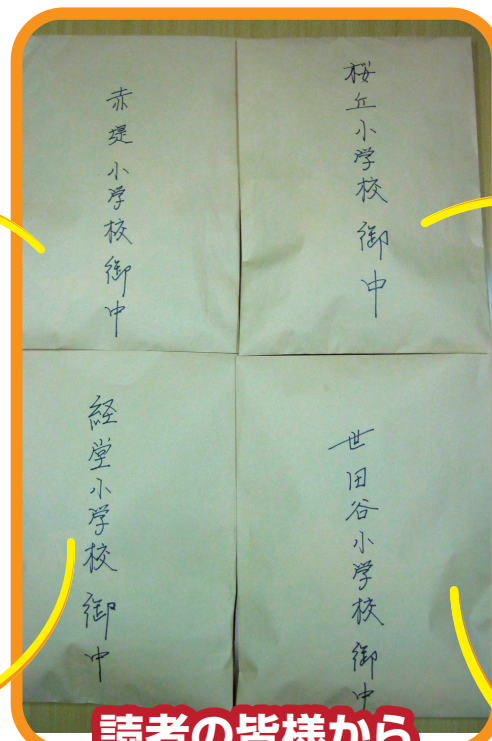 桜丘小学校 御中
赤堤小学校 御中
世田谷小学校 御中
経堂小学校 御中
読者の皆様から